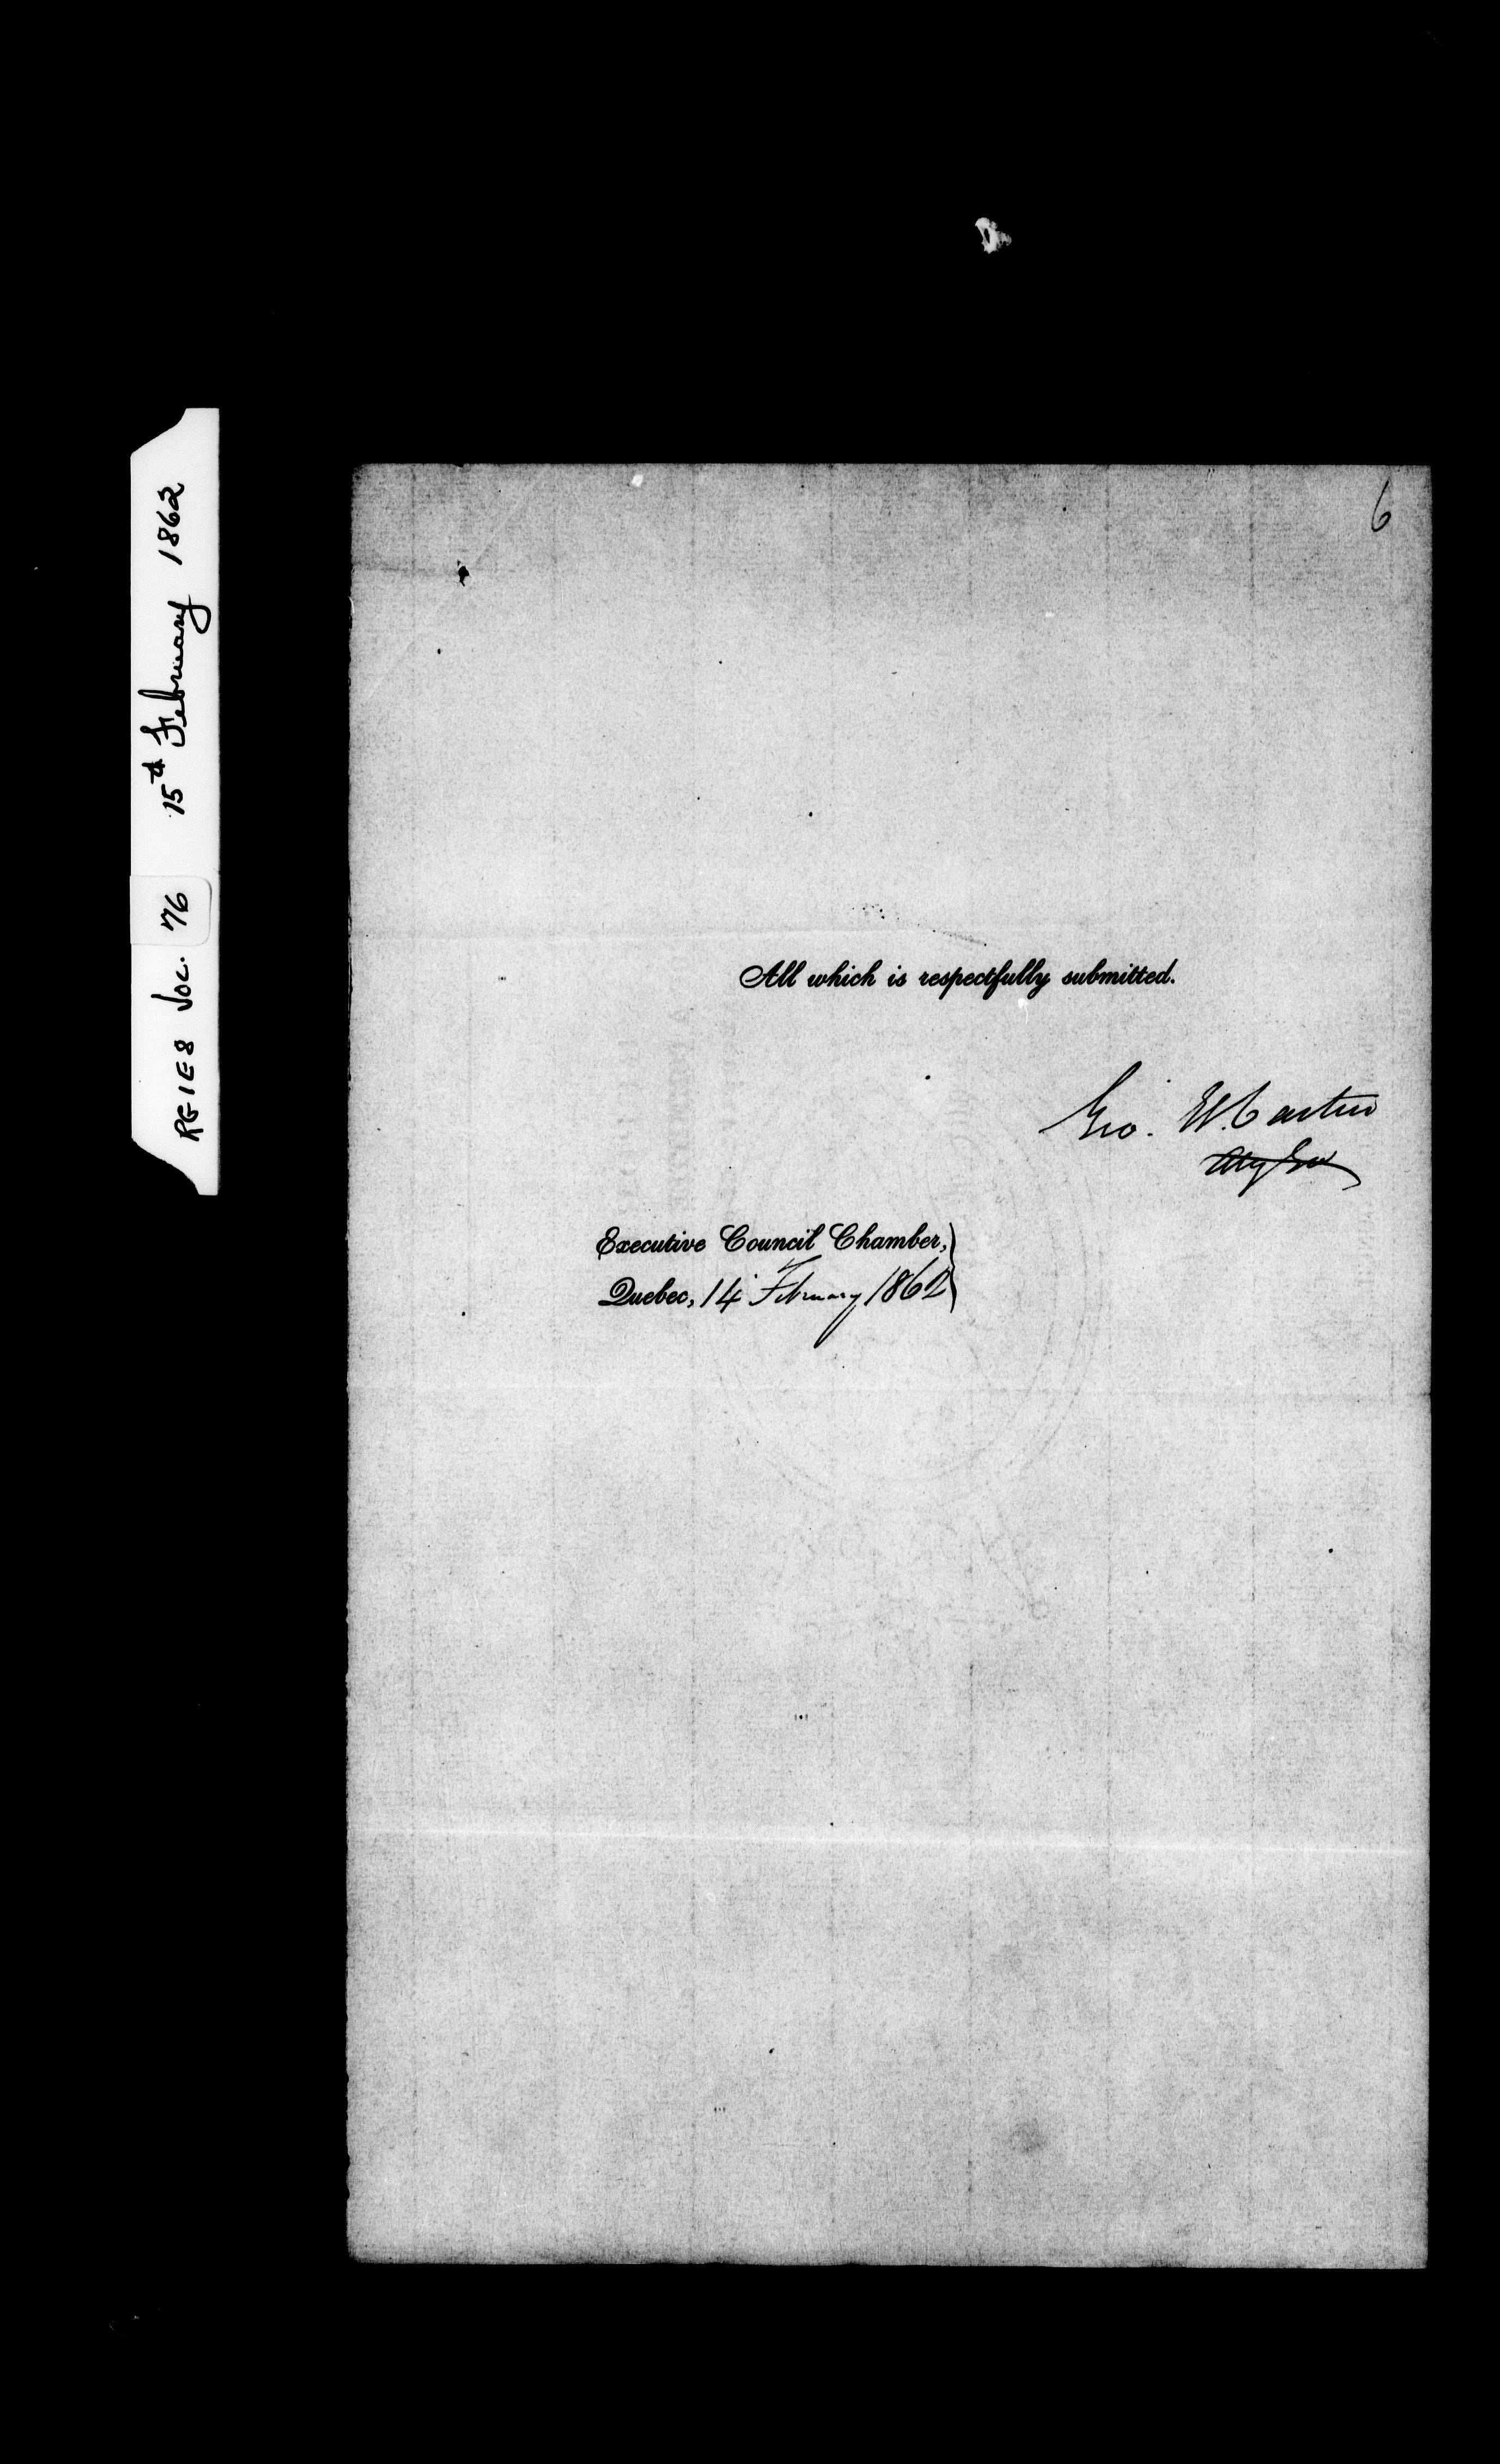 RG 1 E 8 Vol. 76 15th February 1862
6
All which is respectfully submitted.
Geo. E. Cartier
Atty Gen
Executive Council Chamber,
Quebec, 14 February 1862